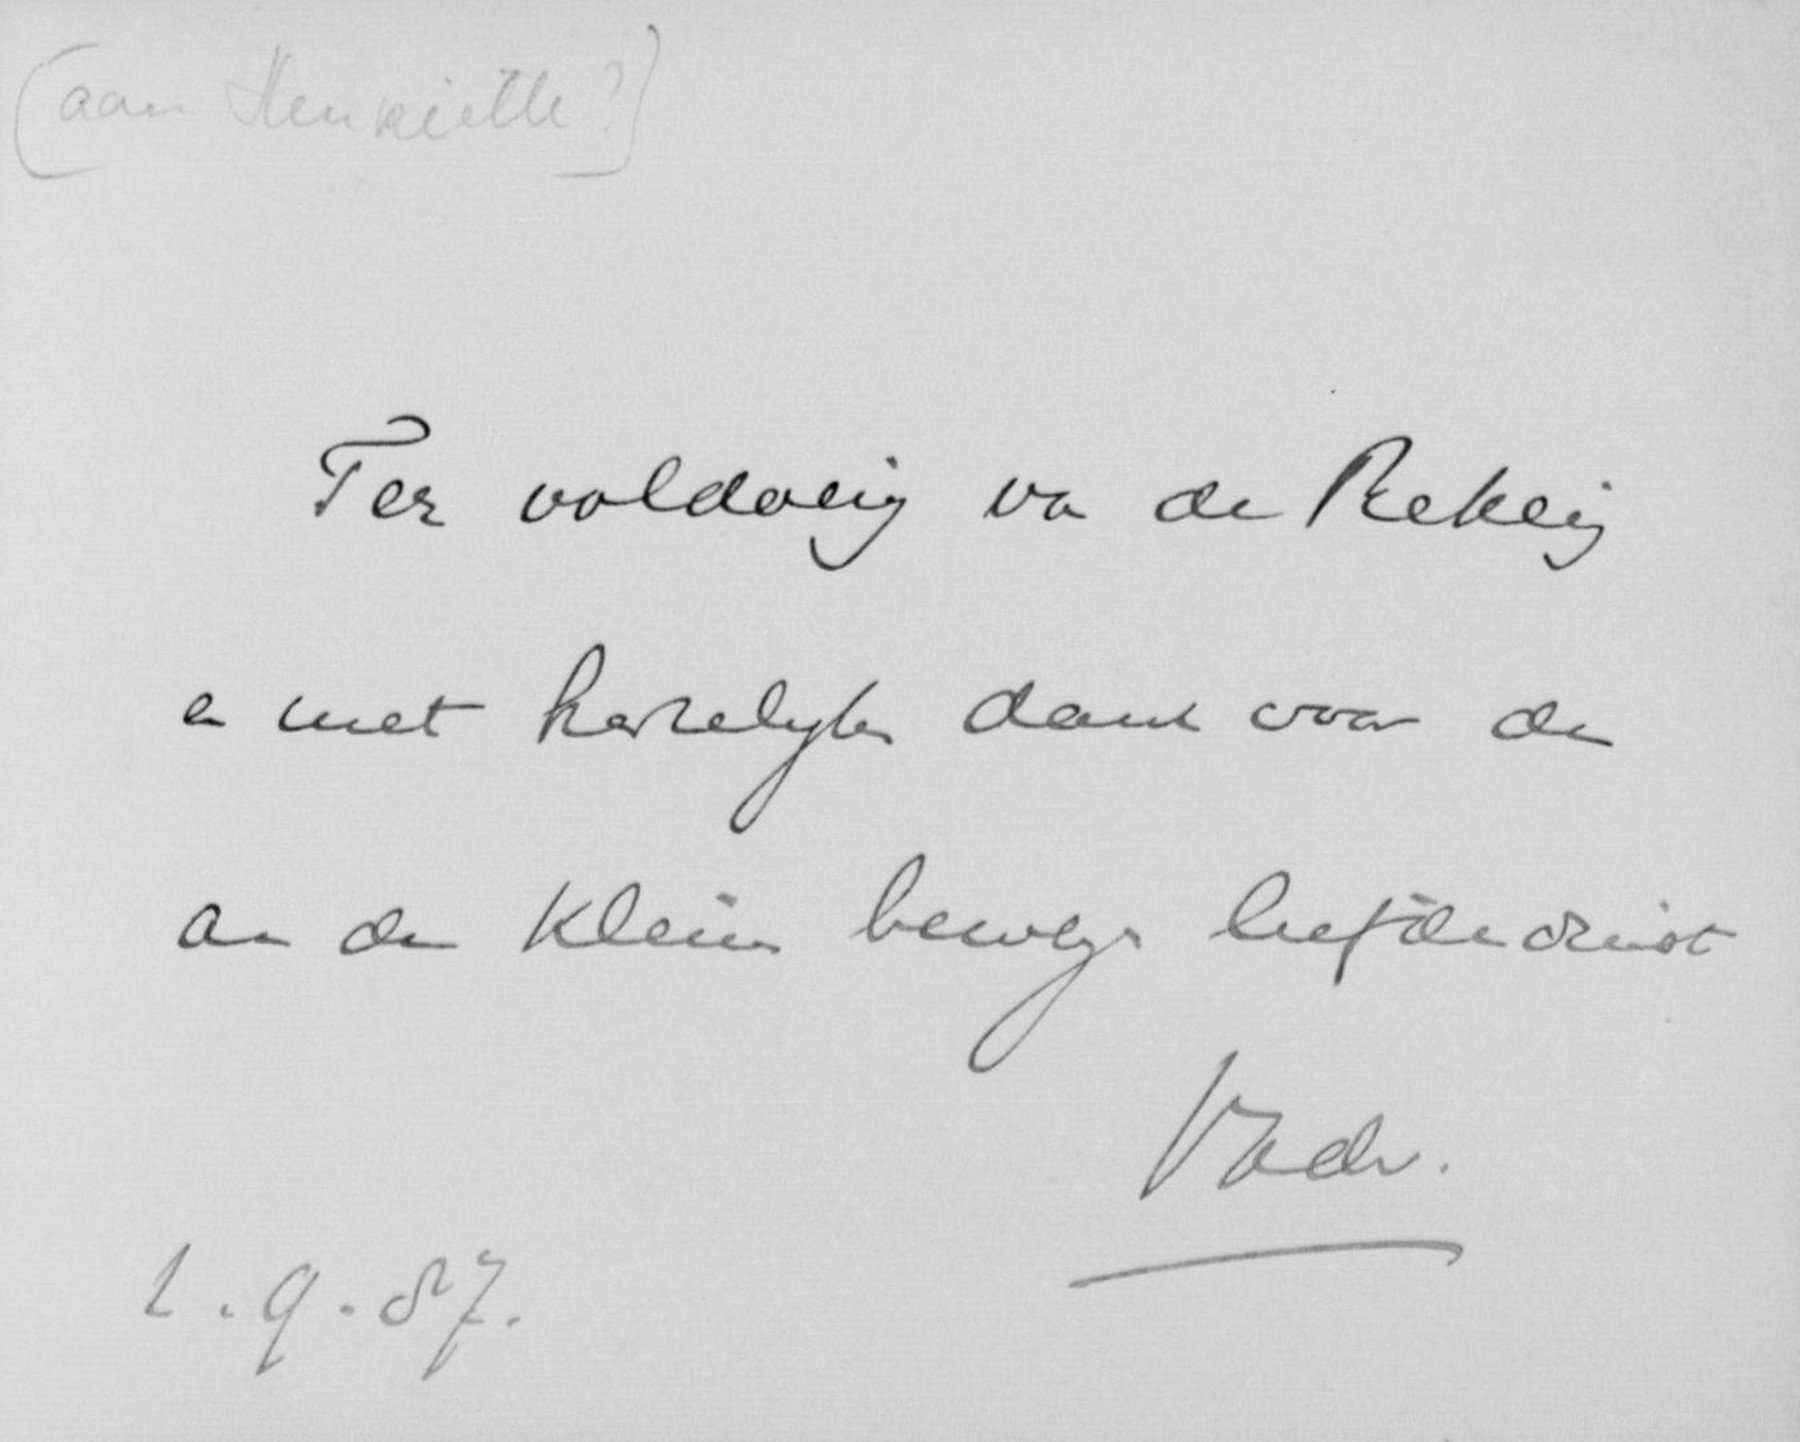 (aan Henriëtte?)
Ter voldoeig va de Rekeig
en met hartelyke dank voor de
aan de kleine beweze liefdedienst
Vader.
1.9.87.